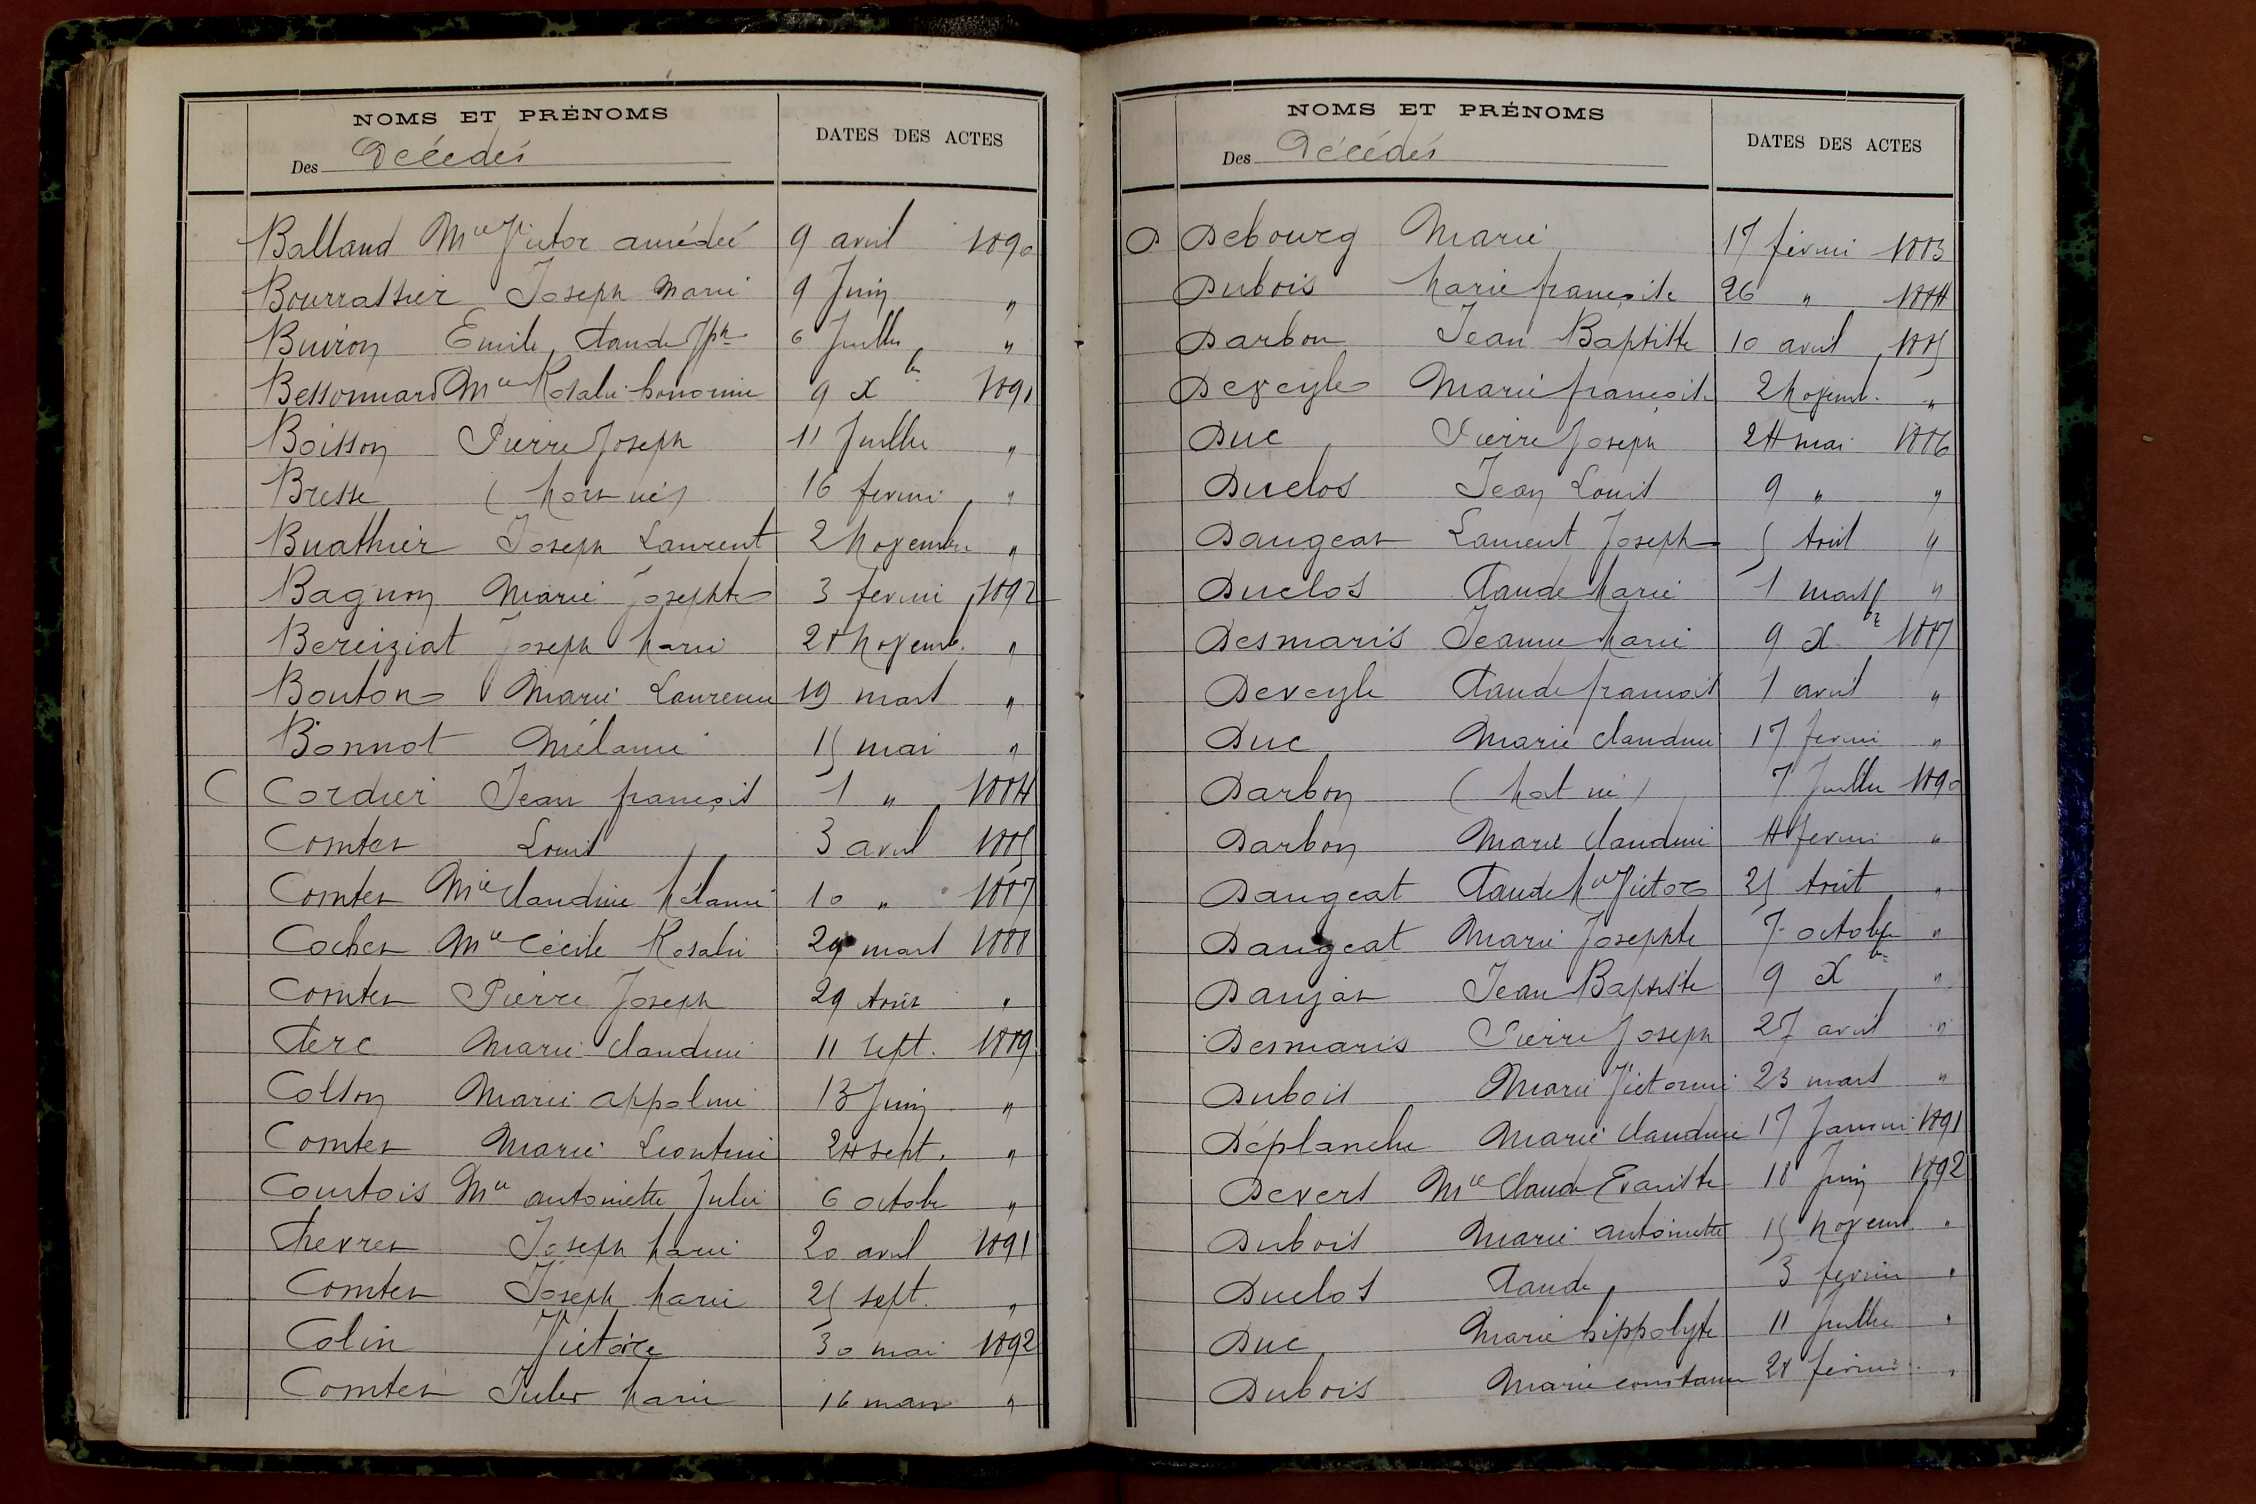 NOMS ET PRÉNOMS
Des Décédés
DATES DES ACTES
Balland Mie Victor amédée 9 avril 1890
Bourrassier Joseph Marie 9 Juin "
Buiron Emile Claude Jph 6 Juillet "
Bessonnard Mie Rosalie honorine 9 Xbre 1891
Boisson Pierre Joseph 11 Juillet "
Bresse (Mort né) 16 fevrier "
Buathier Joseph Laurent 2 Novembre "
Bagnon Marie Josephte 3 fevrier 1892
Bereiziat Joseph Marie 28 Novemb. "
Bouton Marie Laurence 19 mars "
Bonnot Mélanie 15 mai "
C Cordier Jean françois 1 " 1884
Comtet Louis 3 avril 1885
Comtet Mie Claudine Mélanie 10 " 1887
Cochet Mie Cécile Rosalie 29 mars 1888
Comtet Pierre Joseph 29 Août "
Clerc Marie Claudine 11 Sept. 1889
Colson Marie appoline 13 Juin "
Comtet Marie Leontine 24 sept. "
Courtois Mie antoinette Julie 6 octobre "
Chevret Joseph Marie 20 avril 1891
Comtet Joseph Marie 25 sept. "
Colin Victoire 30 mai 1892
Comtet Jules Marie 16 mars "
NOMS ET PRÉNOMS
Des Décédés
DATES DES ACTES
D Debourg Marie 17 février 1883
Dubois Marie françoise 26 " 1884
Darbon Jean Baptiste 10 avril 1885
Deveyle Marie françoise 2 Novemb. "
Duc Pierre Joseph 24 mai 1886
Duclos Jean Louis 9 " "
Daugeat Laurent Joseph 5 Août "
Duclos Claude Marie 1 mars "
Desmaris Jeanne Marie 9 Xbre 1887
Deveyle Claude francois 1 avril "
Duc Marie Claudine 17 fevrier "
Darbon (Mort né) 7 Juillet 1890
Darbon Marie Claudine 4 fevrier "
Daugeat Claude Mie Victor 25 Août "
Daugeat Marie Josephte 7 octobre "
Daujat Jean Baptiste 9 Xbre "
Desmaris Pierre Joseph 27 avril "
Dubois Marie Victorine 23 mars "
Déplanche Marie Claudine 17 Janvier 1891
Devers Mie Claude Evariste 18 Juin 1892
Dubois Marie antoinette 15 Novemb "
Duclos Claude 3 fevrier "
Duc Marie hippolyte 11 Juillet "
Dubois Marie constance 28 fevrier "